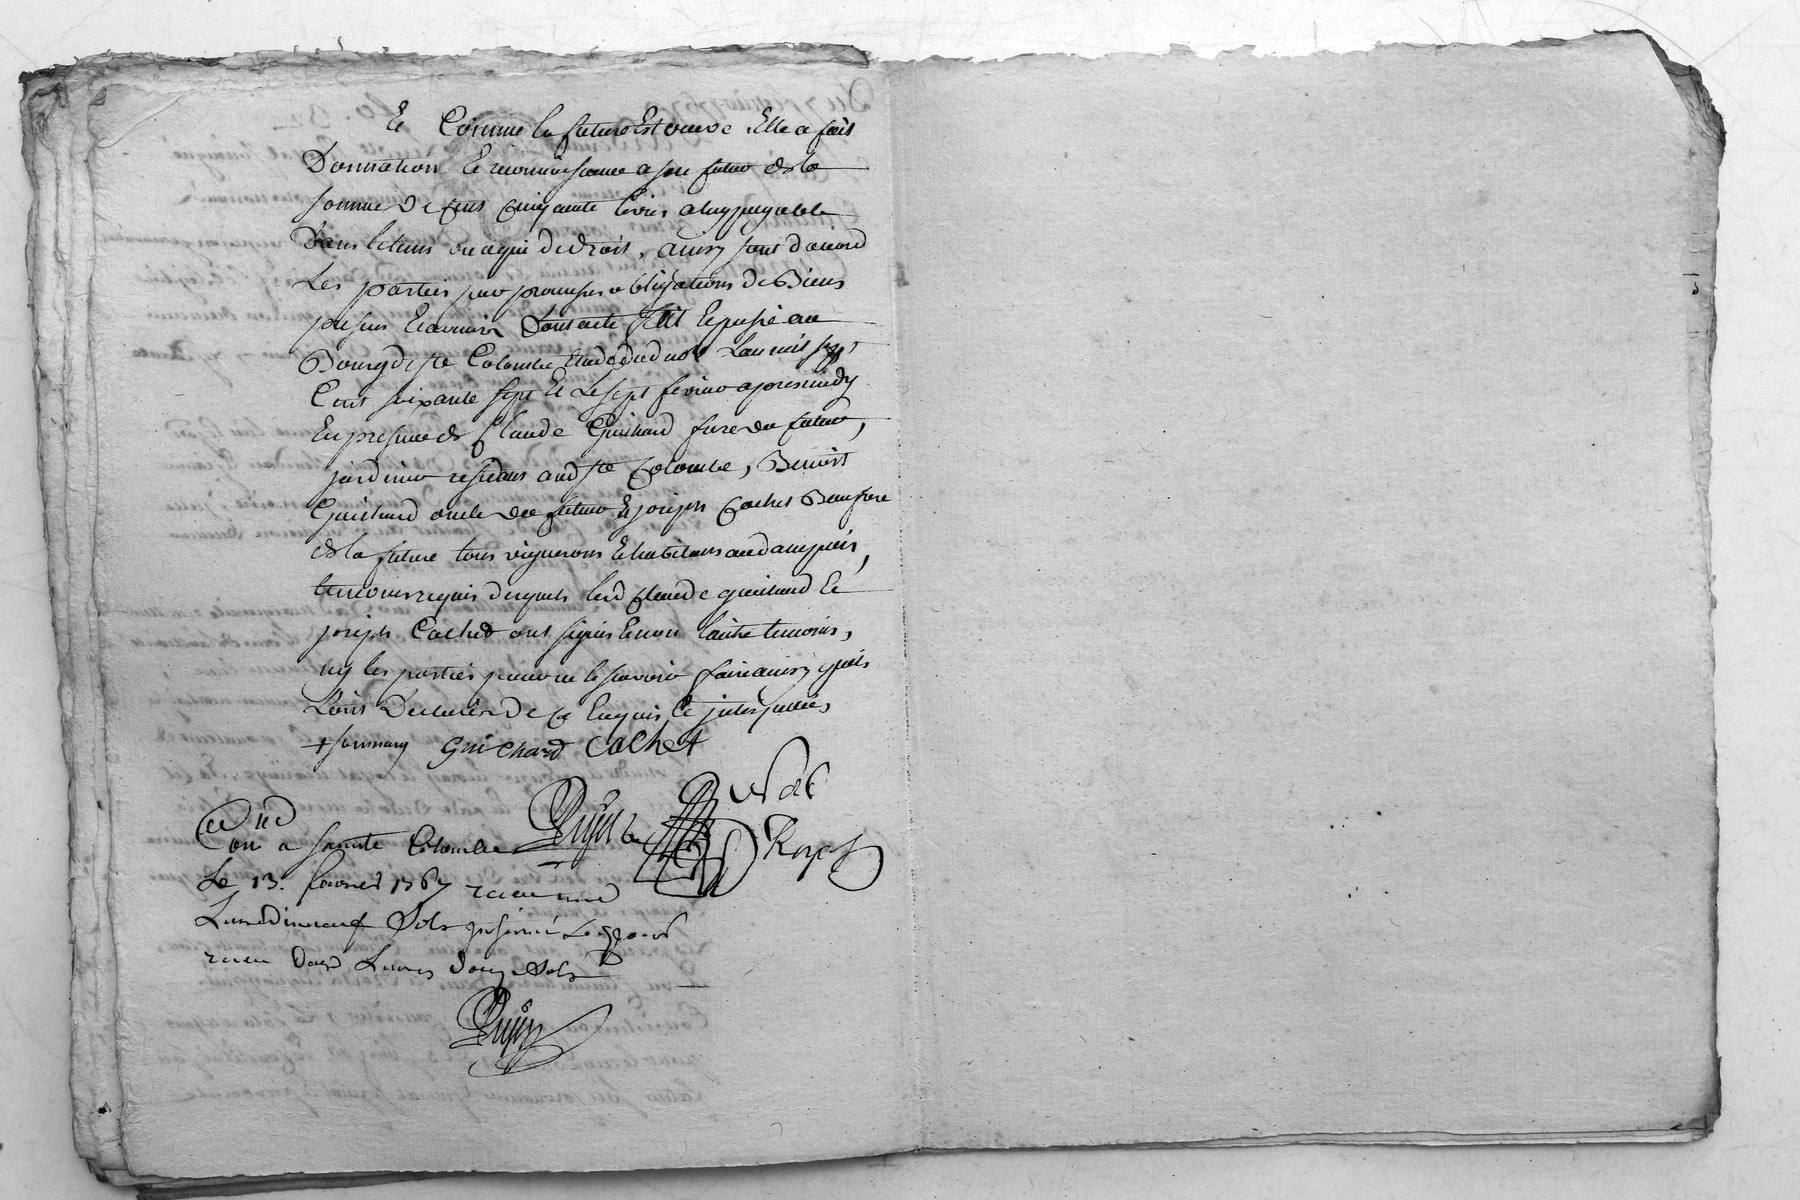 Et Comme la future Est veuve, Elle a fait
Donnation Et reconnoissance a son futur de la
somme de Cens Cinquante livres a luy payable
Dans le tems ou a qui de droit, ainsy sont d'acord
Les parties par promesses obligations de Biens
presens Et avenir Dont acte fait Et passé au
Bourg de ste Colombe Etude dud nore L'an mil sept
Cens soixante sept Et Le sept fevrier apres midy
En presence de Claude Guichard frere du futur,
jardinier residant aud ste Colombe, Benoit
Guichard oncle du futur Et joseph Cachet Beaufrere
de la future tous vignerons Et habitans aud ampuis,
temoins requis desquels led Claude guichard Et
joseph Cachet ont signés Et non l'autre temoins,
ny les parties pour ne le savoir faire ainsy quils
L'ont Declarés De Ce Enquis Et interpellés,
+ sommary Guichard Cachet
Con a Sainte Colombe
Le 13. fevrier 1767 recu
sols
recu Douze sols